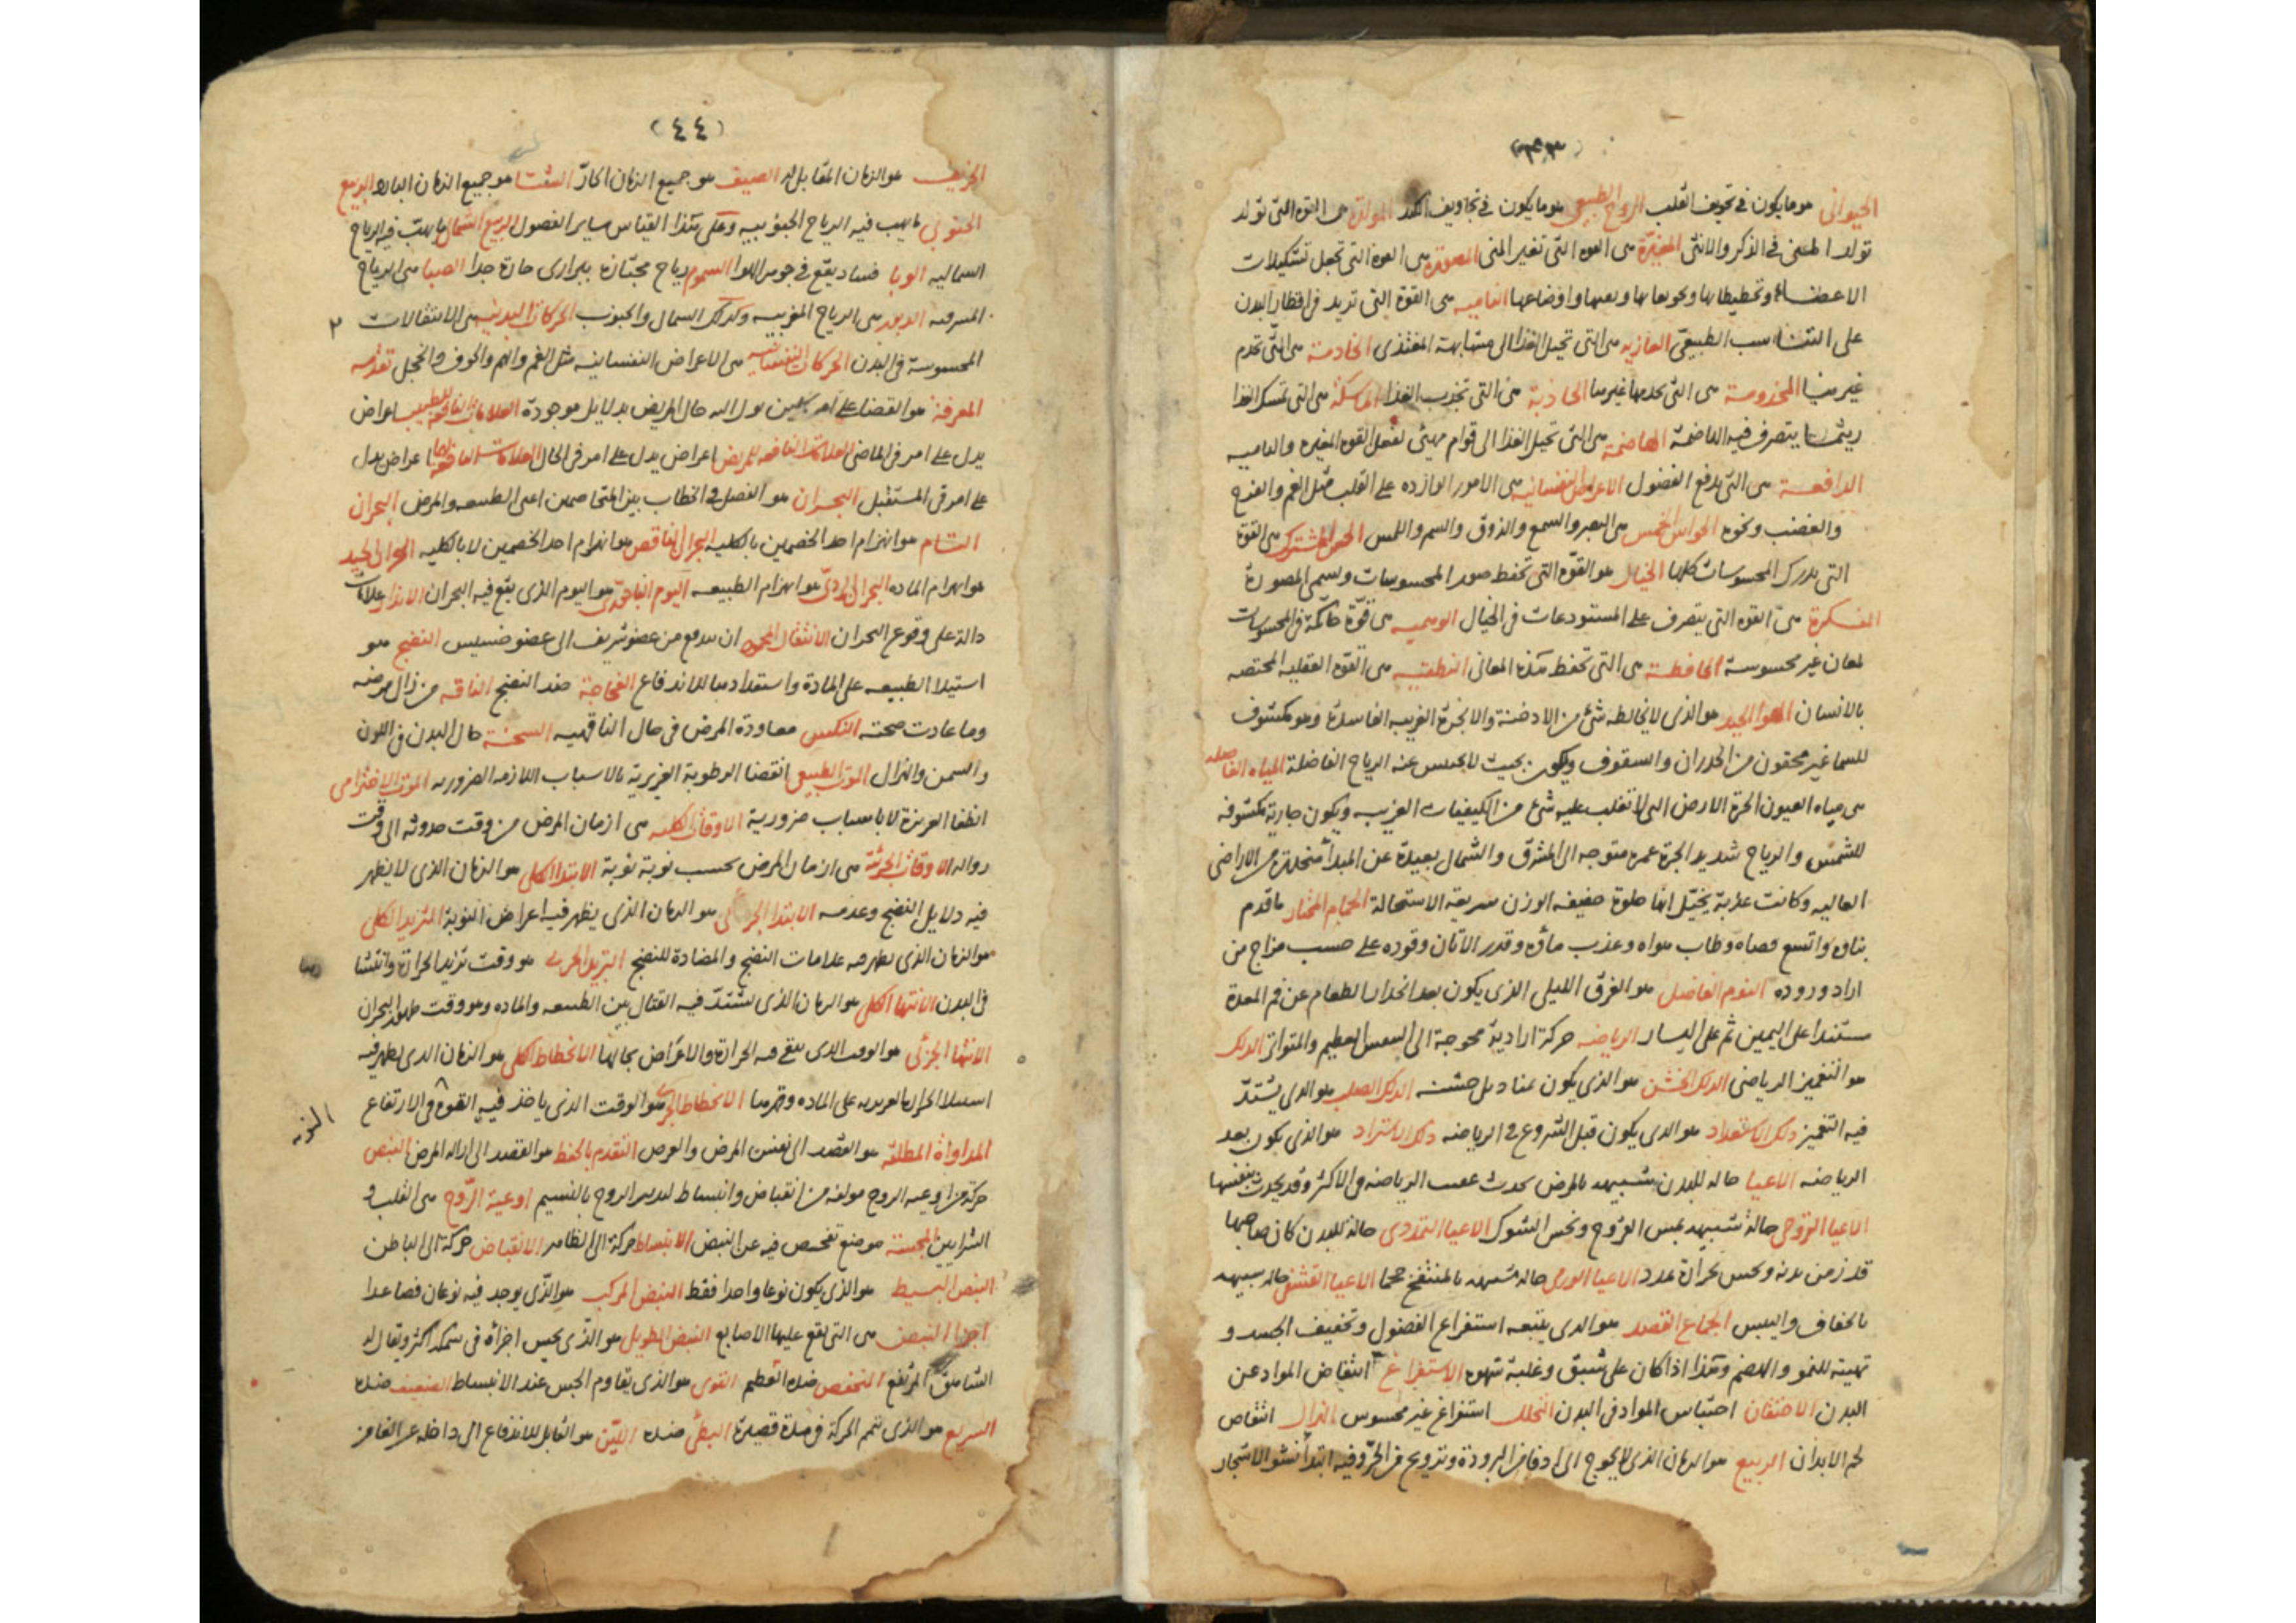 (٤٣)
الحيوانى هو ما يكون فى تجويف القلب الروح الطبيعى هو ما يكون فى تجاويف الكبد المولدة هى القوة التى تولد
تولد المنى فى الذكر والانثى المغيرة هى القوة التى تغير المنى المصورة هى القوة التى تجعل تشكيلات
الاعضاء وتخطيطاتها وتجويفاتها واوضاعها الناميه هى القوة التى تزيد فى اقطار البدن
على التناسب الطبيعى الغاذيه هى التى تحيل الغذا الى مشابهة المغتذى الخادمة هى التى تخدم
غيرها المخدومة هى التى يخدمها غيرها الجاذبة هى التى تجذب الغذا الماسكة هى التى تمسك الغذا
ريثما يتصرف فيه الهاضمة الهاضمة هى التى تحيل الغذا الى قوام مهيئ لفعل القوة المغيره والناميه
الدافعة هى التى تدفع الفضول الاعراض النفسانيه هى الامور الوارده على القلب مثل الغم والفرح
والغضب ونحوه الحواس الخمس هى البصر والسمع والذوق والشم واللمس الحس المشترك هى القوة
التى تدرك المحسوسات كلها الخيال هو القوة التى تحفظ صور المحسوسات ويسمى المصورة
المفكرة هى القوه التى يتصرف على المستودعات فى الخيال الوهميه هى قوة حاكمة فى المحسوسات
لمعان غير محسوسة الحافظة هى التى تحفظ هذه المعانى النطقيه هى القوة العقليه المختصه
بالانسان الهوا الجيد هو الذى لا يخالطه شئ من الادخنة والابخرة الغريبه الفاسدة وهو مكشوف
للسما غير محقون من الجدران والسقوف ويكون بحيث لا يحبس عنه الرياح الفاضلة المياه الفاضله
هى مياه العيون الحرة الارض التى لا تغلب عليه شئ من الكيفيات الغريبه ويكون جارية مكشوفه
للشمس والرياح شديد الجرية غمره متوجه الى المشرق والشمال بعيدة عن المبدأ منحدرة من الاراضى
العاليه وكانت عذبة يخيل انها حلوة خفيفه الوزن سريعة الاستحالة الحمام المختار ما قدم
بناوه واتسع فضاه وطاب هواه وعذب ماؤه وقدر الاتان وقوده على حسب مزاج من
اراد وروده النوم الفاضل هو الغرق الليلى الذى يكون بعد انحدار الطعام عن فم المعدة
مستندا على اليمين ثم على اليسار الرياضه حركة ارادية محوجة الى النفس العظيم والمتواتر الدلك
هو التغميز الرياضى الدلك الخشن هو الذى يكون بمناديل خشنه الدلك الصلب هو الذى يشتد
فيه التغميز دلك الاستعداد هو الذى يكون قبل الشروع فى الرياضه دلك الاسترداد هو الذى يكون بعد
الرياضه الاعيا حاله للبدن شبيهه بالمرض يحدث عقب الرياضه فى الاكثر وقد يحدث بنفسها
الاعيا القروحى حالة شبيهه بمس القروح ونخس الشوك الاعيا التمددى حالة للبدن كان صاحبها
قد رض بدنه ويحس بحرارة تمدد الاعيا الورمى حاله شبيهه بالمنتفخ حجما الاعيا القشفى حاله شبيهه
بالجفاف واليبس الجماع القصد هو الذى يتبعه استفراغ الفضول وتخفيف الجسد و
تهيئه للنمو والهضم وهذا اذا كان على شبق وغلبة شهوه الاستفراغ انتقاض المواد عن
البدن الاحتقان احتباس المواد فى البدن التحلل استفراغ غير محسوس الهزال انتقاص
لحم الابدان الربيع هو الزمان الذى لا يحوج الى ادفا من البرودة وترويح من الحر وفيه ابتدأ نشو الاشجار
(٤٤)
الخريف هو الزمان المقابل له الصيف هو جميع الزمان الحار الشتا هو جميع الزمان البارد الربيع
الجنوبى ما يهب فيه الرياح الجنوبيه وعلى هذا القياس ساير الفصول الربيع الشمالى ما يهب فيه الرياح
الشماليه الوبا فساد يقع فى جوهر الهوا السموم رياح مجتازة ببرارى حارة جدا الصبا هى الرياح
المشرقيه الدبور هى الرياح المغربيه وكذلك الشمال والجنوب الحركات البدنيه هى الانتقالات
المحسوسة فى البدن الحركات النفسانيه هى الاعراض النفسانيه مثل الغم والهم والخوف والخجل تقدمه
المعرفة هو القضا على امر يدل اليه حال المريض بدلايل موجودة العلامات النافعه للطبيب اعراض
يدل على امر فى الماضى العلامات النافعه للمريض اعراض يدل على امر فى الحال العلامات النافعه لهما اعراض يدل
على امر فى المستقبل البحران هو الفصل فى الخطاب بين المتخاصمين اعنى الطبيعه والمرض البحران
التام هو انهزام احد الخصمين بالكليه البحران الناقص هو انهزام احد الخصمين لا بالكليه البحران الجيد
هو انهزام الماده البحران الردى هو انهزام الطبيعه اليوم الباحورى هو اليوم الذى يقع فيه البحران الانذار علامات
دالة على وقوع البحران الانتقال ان يندفع من عضو شريف الى عضو خسيس النضج هو
استيلا الطبيعه على المادة واستعدادها للاندفاع الفجاجة ضد النضج الناقه من زال مرضه
وما عادت صحته النكس معاودة المرض فى حال الناقهيه السحنة حال البدن فى اللون
والسمن والهزال الموت الطبيعى انقضا الرطوبة الغريزية بالاسباب اللازمه الضروريه الموت الاخترامى
انطفا الغريزة لا باسباب ضرورية الاوقات الكليه هى ازمان المرض من وقت حدوثه الى وقت
زواله الاوقات الجزئية هى ازمان المرض بحسب نوبة نوبة الابتدا الكلى هو الزمان الذى لا يظهر
فيه دلايل النضج وعدمه الابتدا الجزئى هو الزمان الذى يظهر فيه اعراض النوبة التزيد الكلى
هو الزمان الذى يظهر فيه علامات النضج والمضادة للنضج التزيد الجزئى هو وقت تزيد الحرارة وانتشا رها
فى البدن الانتها الكلى هو الزمان الذى يشتد فيه القتال بين الطبيعه والماده وهو وقت ظهور البحران
الانتها الجزئى هو الوقت الذى يبقى فيه الحرارة والاعراض بحالها الانحطاط الكلى هو الزمان الذى يظهر فيه
استيلا الحرارة الغريزيه على الماده وقهرها الانحطاط الجزئى هو الوقت الذى ياخذ فيه القوة فى الارتفاع
المداواة المطلقه هو القصد الى نفس المرض والعرض التقدم بالحفظ هو القصد الى ازاله المرض النبض
حركة من اوعيه الروح مولفه من انقباض وانبساط لتدبير الروح بالنسيم اوعية الروح هى القلب و
الشرايين المجسة موضع تفحص فيه عن النبض الانبساط حركة الى الظاهر الانقباض حركة الى الباطن
النبض البسيط هو الذى يكون نوعا واحدا فقط النبض المركب هو الذى يوجد فيه نوعان فصاعدا
اجزا النبض هى التى تقع عليها الاصابع النبض الطويل هو الذى يحس اجزاؤه فى سمكه اكثر ويقال له
الشاهق المرتفع المنخفض ضده العظيم القوى هو الذى يقاوم الجس عند الانبساط الضعيف ضده
السريع هو الذى تتم الحركة فى مدة قصيرة البطئ ضده اللين هو القابل للاندفاع الى داخله عن الغامز